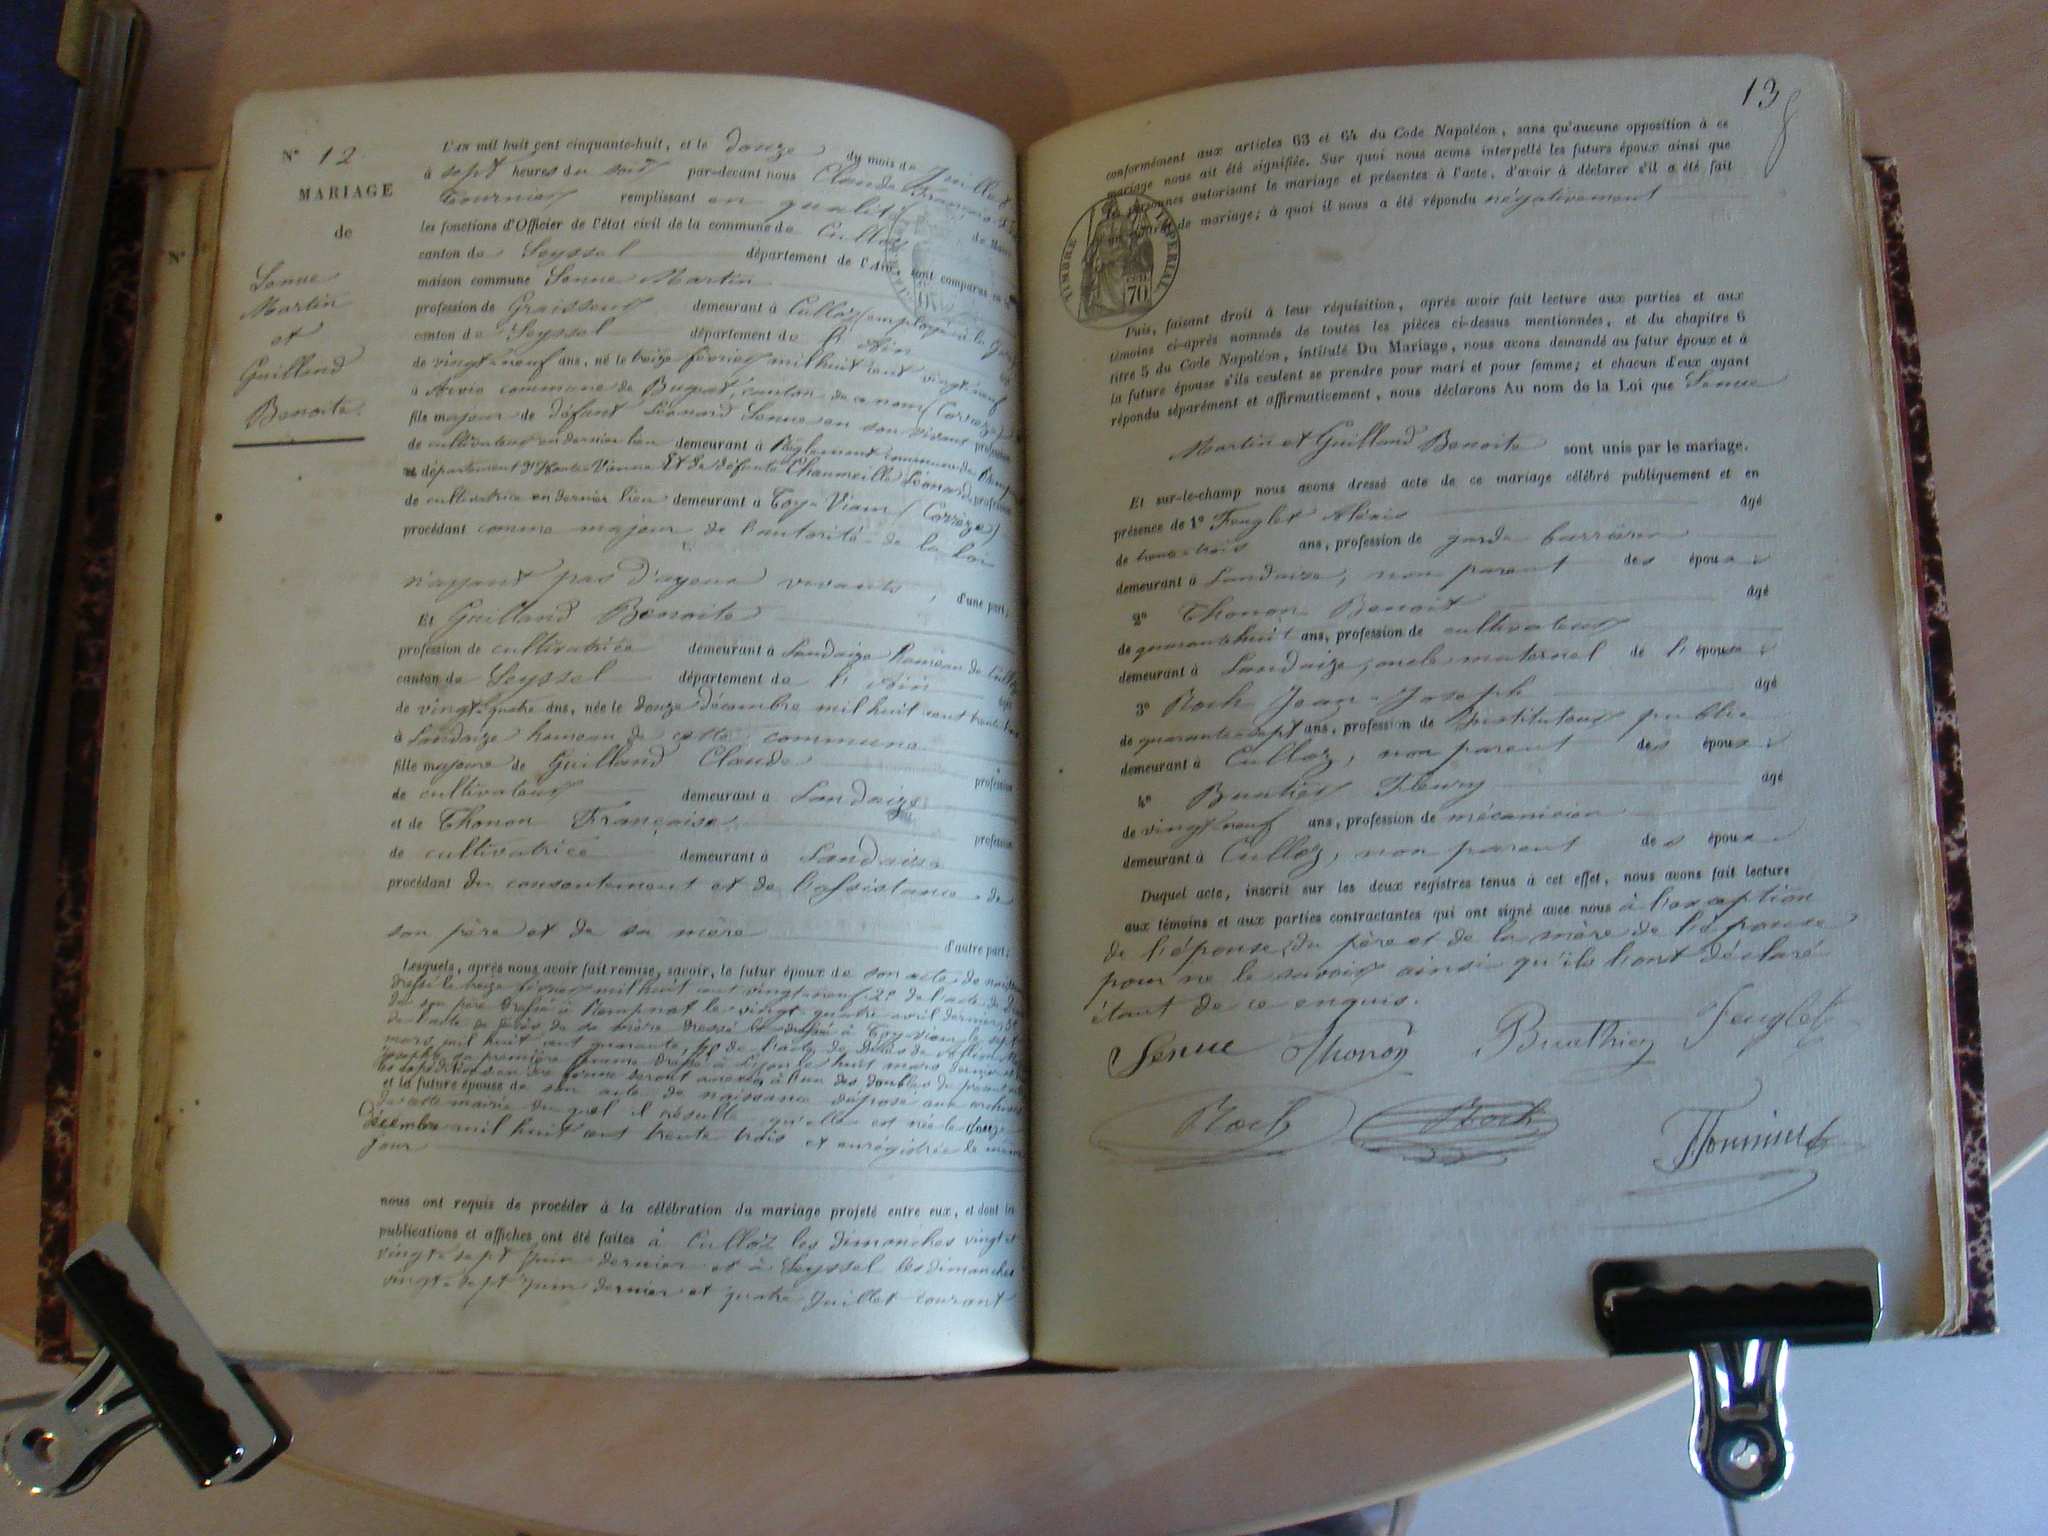 N° 12
MARIAGE
de
Senue
Martin
et
Guilland
Benoite.
N°
L'an mil huit cent cinquante-huit, et le douze du mois de Juillet
à sept heures du soir par-devant nous Claude François
Tournier remplissant en qualité de Maire
les fonctions d'Officier de l'état civil de la commune de Culloz
canton de Seyssel département de l'Ain, sont comparus en
maison commune Senue Martin
profession de Graisseur demeurant à Culloz (employé à la Gare)
canton de Seyssel département de l'Ain
de vingt-neuf ans, né le treize février mil huit cent vingt-neuf
à commune de Bugeat, canton de ce nom (Corrèze)
fils majeur de défunt Léonard Senue en son vivant profession
de cultivateur en dernier lieu demeurant à commune de
et département Hte Vienne Et de défunte Chaumeille Léonarde profession
de cultivatrice en dernier lieu demeurant à Toy-Viam (Corrèze)
procédant comme majeur de l'autorité de la loi
n'ayant pas d'ayeux vivants, d'une part,
Et Guilland Benoite
profession de cultivatrice demeurant à Landaize hameau de Culloz
canton de Seyssel département de l'Ain
de vingt-quatre ans, née le douze décembre mil huit cent trente trois
à Landaize hameau de cette commune
fille majeure de Guilland Claude profession
de cultivateur demeurant à Landaize
et de Thonon Françoise profession
de cultivatrice demeurant à Landaize
procédant du consentement et de l'assistance de
son père et de sa mère d'autre part;
Lesquels, après nous avoir fait remise, savoir, le futur époux de son acte de naissance
dressé le treize février mil huit cent vingt-neuf 2° de l'acte de décès
de son père dressé à Rempnat le vingt quatre avril dernier, 3°
de l'acte de décès de sa mère dressé à Toy-Viam le sept
mars mil huit cent quarante, 4° de l'acte de décès de
sa première femme dressé à Lyon le huit mars dernier
les expéditions en due forme seront annexées à l'un des doubles du présent
et la future épouse de son acte de naissance déposé aux archives
de cette mairie duquel il résulte qu'elle est née le douze
Décembre mil huit cent trente trois et enrégistrée le même
jour
nous ont requis de procéder à la célébration du mariage projeté entre eux, et dont les
publications et affiches ont été faites à Culloz les dimanches vingt et
vingt-sept juin dernier et à Seyssel les dimanches
vingt-sept juin dernier et quatre Juillet courant
13
conformément aux articles 63 et 64 du Code Napoléon, sans qu'aucune opposition à ce
mariage nous ait été signifiée. Sur quoi nous avons interpellé les futurs époux ainsi que
les personnes autorisant le mariage et présentes à l'acte, d'avoir à déclarer s'il a été fait
un contrat de mariage; à quoi il nous a été répondu négativement
TIMBRE IMPERIAL
70
Puis, faisant droit à leur réquisition, après avoir fait lecture aux parties et aux
témoins ci-après nommés de toutes les pièces ci-dessus mentionnées, et du chapitre 6
titre 5 du Code Napoléon, intitulé Du Mariage, nous avons demandé au futur époux et à
la future épouse s'ils veulent se prendre pour mari et pour femme; et chacun d'eux ayant
répondu séparément et affirmativement, nous déclarons Au nom de la Loi que Senue
Martin et Guilland Benoite sont unis par le mariage.
Et sur-le-champ nous avons dressé acte de ce mariage célébré publiquement et en
présence de 1° Feuglet Aléxis âgé
de trente-trois ans, profession de garde barrière
demeurant à Landaize, non parent des époux
2° Thonon Benoit âgé
de quarante huit ans, profession de cultivateur
demeurant à Landaize, oncle maternel de l'épouse
3° Roch Jean-Joseph âgé
de quarante-sept ans, profession de Instituteur public
demeurant à Culloz, non parent des époux
4° Buathier Fleury âgé
de vingt-neuf ans, profession de mécanicien
demeurant à Culloz, non parent des époux
Duquel acte, inscrit sur les deux registres tenus à cet effet, nous avons fait lecture
aux témoins et aux parties contractantes qui ont signé avec nous à l'exception
de l'épouse, du père et de la mère de l'épouse
pour ne le savoir ainsi qu'ils l'ont déclaré
étant de ce enquis.
Senue Thonon Buathier Feuglet
Roch Roch Tournier